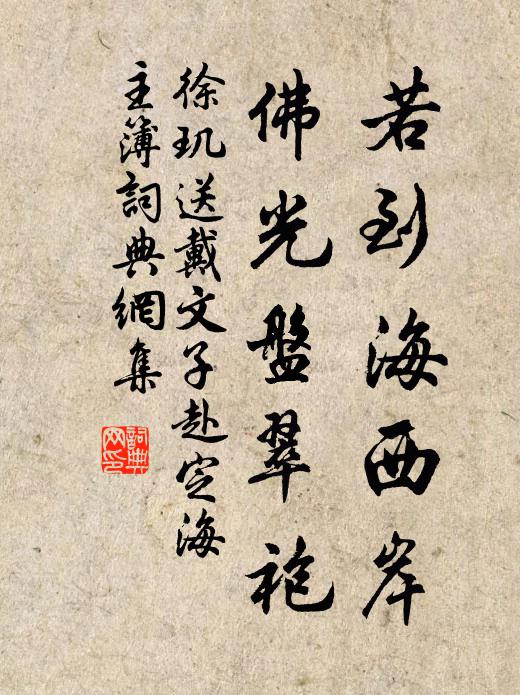 若到海西岸
佛光盤翠袍
徐玑送戴文子赴定海
主簿詞典網集
詞典
网印